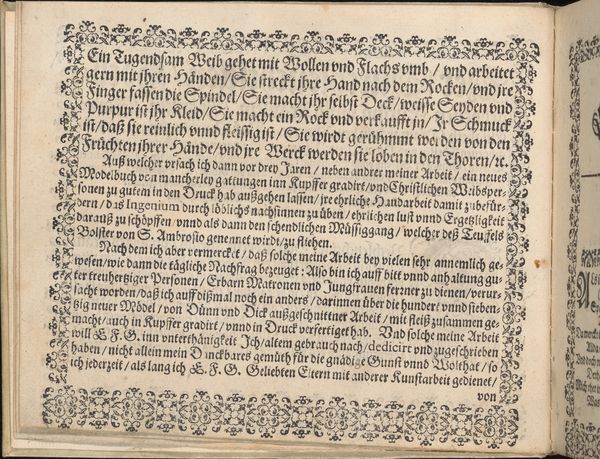 Ein Tugendsam Weib gehet mit Wollen vnd Flachs vmb / vnd arbeitet
gern mit jhren Händen / Sie streckt jhre Hand nach dem Rocken / vnd jre
Finger fassen die Spindel / Sie macht jhr selbst Deck / weisse Seyden vnd
Purpur ist jhr Kleid / Sie macht ein Rock vnd verkaufft jn / Jr Schmuck
ist / daß sie reinlich vnnd fleissig ist / Sie wirdt gerühmmt werden von den
Früchten jhrer Hände / vnd jre Werck werden sie loben in den Thoren / ꝛc.
Auß welcher vrsach ich dann vor drey Jaren / neben andrer meiner Arbeit / ein neues
Modelbuch von mancherley gattungen inn Kupffer gradirt / vnd Christlichen Weibsper-
sonen zu gutem in den Druck hab außgehen lassen / jre ehrliche Handarbeit damit zubefür-
dern / das Ingenium durch löblichs nachsinnen zu üben / ehrlichen lust vnnd Ergetzligkeit
darauß zu schöpffen / vnnd als dann den schendlichen Müssiggang / welcher deß Teuffels
Bolster von S. Ambrosio genennet wirdt / zu fliehen.
Nach dem ich aber vermercket / daß solche meine Arbeit bey vielen sehr annemlich ge-
wesen / wie dann die tägliche Nachfrag bezeuget : Also bin ich auff bitt vnnd anhaltung gu-
ter treuhertziger Personen / Erbarn Matronen vnd Jungfrauen ferrner zu dienen / verur-
sacht worden / daß ich auff dißmal noch ein anders / darinnen über die hundert vnnd sieben-
tzig neuer Mödel / von Dünn vnd Dick außgeschnittner Arbeit / mit fleiß zusammen ge-
macht / auch in Kupffer gradirt / vnnd in Druck verfertiget hab. Vnd solche meine Arbeit
will E. F. G. inn vnterthänigkeit Ich / altem gebrauch nach / dedicirt vnd zugeschrieben
haben / nicht allein mein Danckbares gemüth für die gnädige Gunst vnnd Wolthat / so
ich jederzeit / als lang ich E. F. G. Geliebten Eltern mit anderer Kunstarbeit gedienet /
von